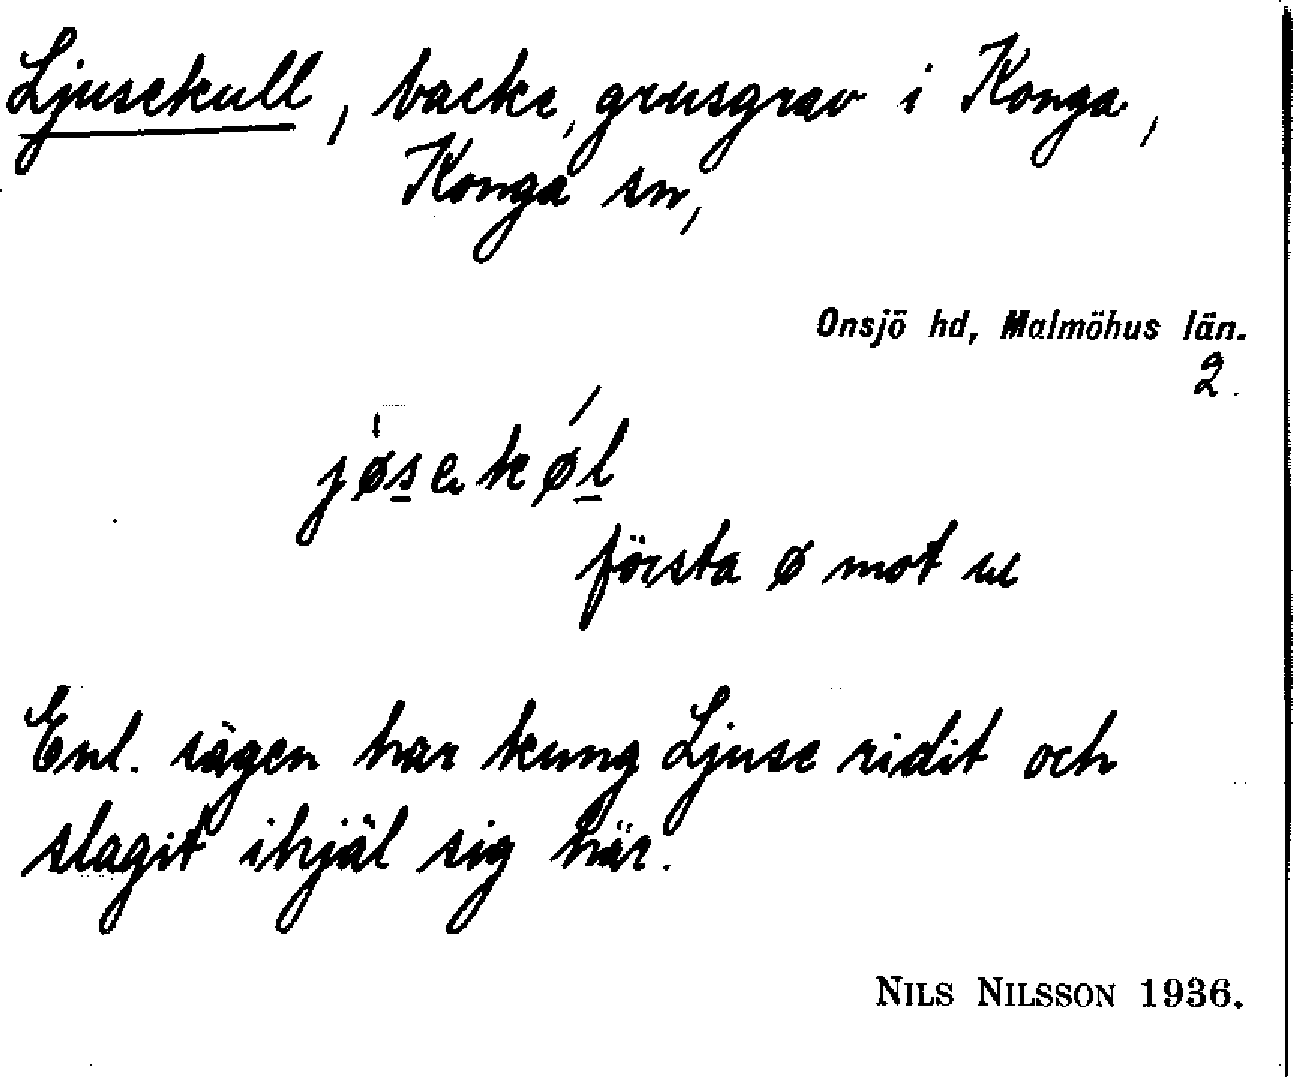 Ljusekull, backe, grusgrav i Konga,
Konga sn,
Onsjö hd, Malmöhus län.
2.
jøsekøl
första ø mot u
Enl. sägen har kung Ljuse ridit och
slagit ihjäl sig här.
NILS NILSSON 1936.